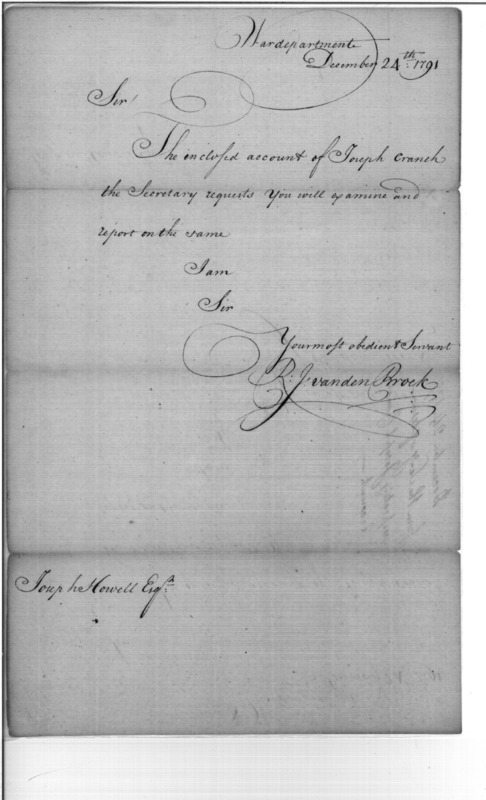 Wardepartment
December 24th 1791
Sir
The inclosed account of Joseph Cranch
the Secretary requests You will examine and
report on the same
I am
Sir
Your most obedient Servant
R: J. vanden Broek
Joseph Howell Esqr.